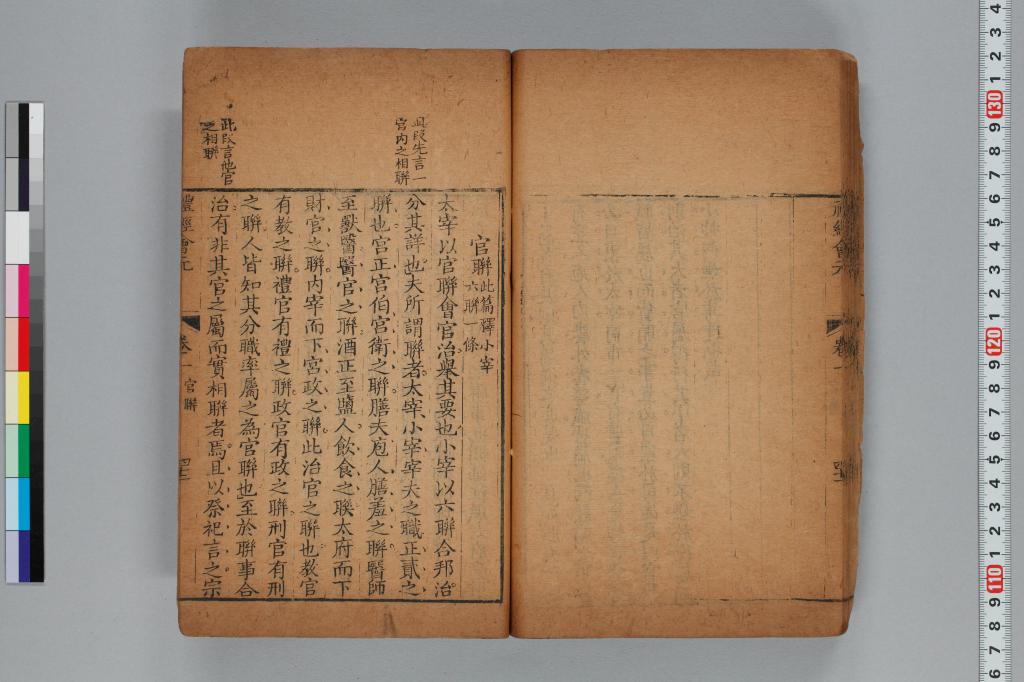 禮經會元
卷一
官聯此篇釋小宰
六聯一條
太宰以官聯會官治舉其要也小宰以六聯合邦治
分其詳也夫所謂聯者太宰小宰宰夫之職正貳之
聯也宮正宮伯宮衛之聯膳夫庖人膳羞之聯醫師
至獸醫醫官之聯酒正至鹽人飲食之聯太府而下
財官之聯内宰而下宮政之聯此治官之聯也教官
有教之聯禮官有禮之聯政官有政之聯刑官有刑
之聯人皆知其分職率屬之為官聯也至於聯事合
治有非其官之屬而實相聯者焉且以祭祀言之宗
且段先言一
官内之相聯
此段言他官
之相聯
禮經會元
卷一
官聯
130
120
110